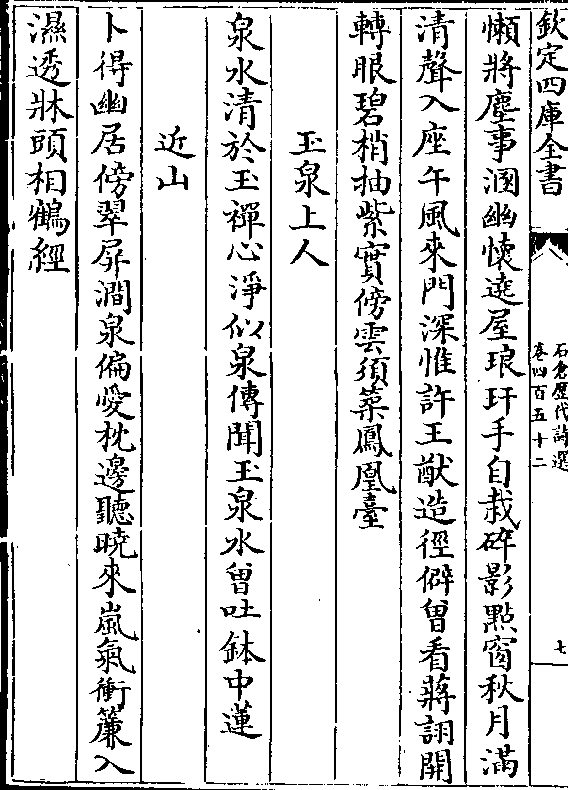 欽定四庫全書
石倉歷代詩選
卷四百五十二
七
懶將塵事溷幽懐遶屋琅玕手自栽碎影㸃窗秋月滿
清聲入座午風來門深惟許王猷造徑僻曽看蔣詡開
轉眼碧梢抽紫實傍雲須築鳳凰臺
玉泉上人
泉水清於玉禪心淨似泉傳聞玉泉水曽吐鉢中蓮
近山
卜得幽居傍翠屏澗泉偏愛枕邊聽曉來嵐氣衝簾入
濕透牀頭相鶴經